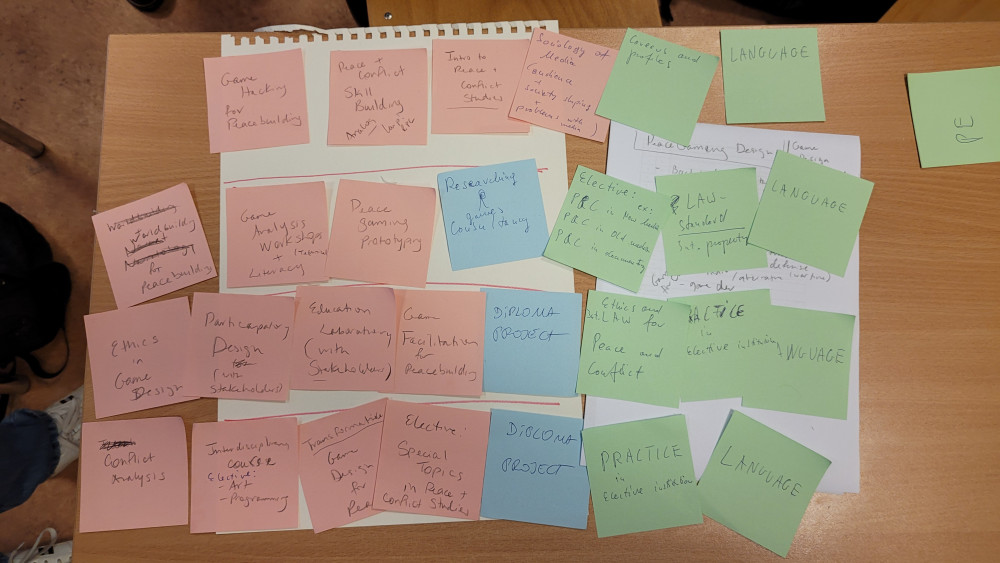 Game
Hacking
for
Peacebuilding
Peace +
Conflict
Skill
Building
Analog
Intro to
Peace +
Conflict
Studies
Sociology of
Media
(audience
+
society shaping
+
problems with
media)
Careers and
profiles
LANGUAGE
PE
PeaceGaming Design
Game
Worldbuilding
Worldbuilding
for
Peacebuilding
Game
Analysis
Workshops
+
Literacy
Peace
gaming
Prototyping
Researching
games
Consultancy
Elective: ex:
P&C in New media
P&C in Old media
P&C in documentary
LAW-
Standard
Int. property
LANGUAGE
defense
game dev
Ethics
in
Game
Design
Participatory
Design
(with
Stakeholders)
Education
Laboratory
(with
Stakeholders)
Game
Facilitation
for
Peacebuilding
DiPLOMA
PROJECT
Ethics and
Int. LAW for
Peace and
Conflict
in
Elective
NGUAGE
Conflict
Analysis
Interdisciplinary
course
Elective:
- Art
- Programming
Transformative
Game
Design
for
Peac
Elective:
Special
Topics
in Peace +
Conflict Studies
DiPLOMA
PROJECT
PRACTICE
in
Elective institution
LANGUAGE